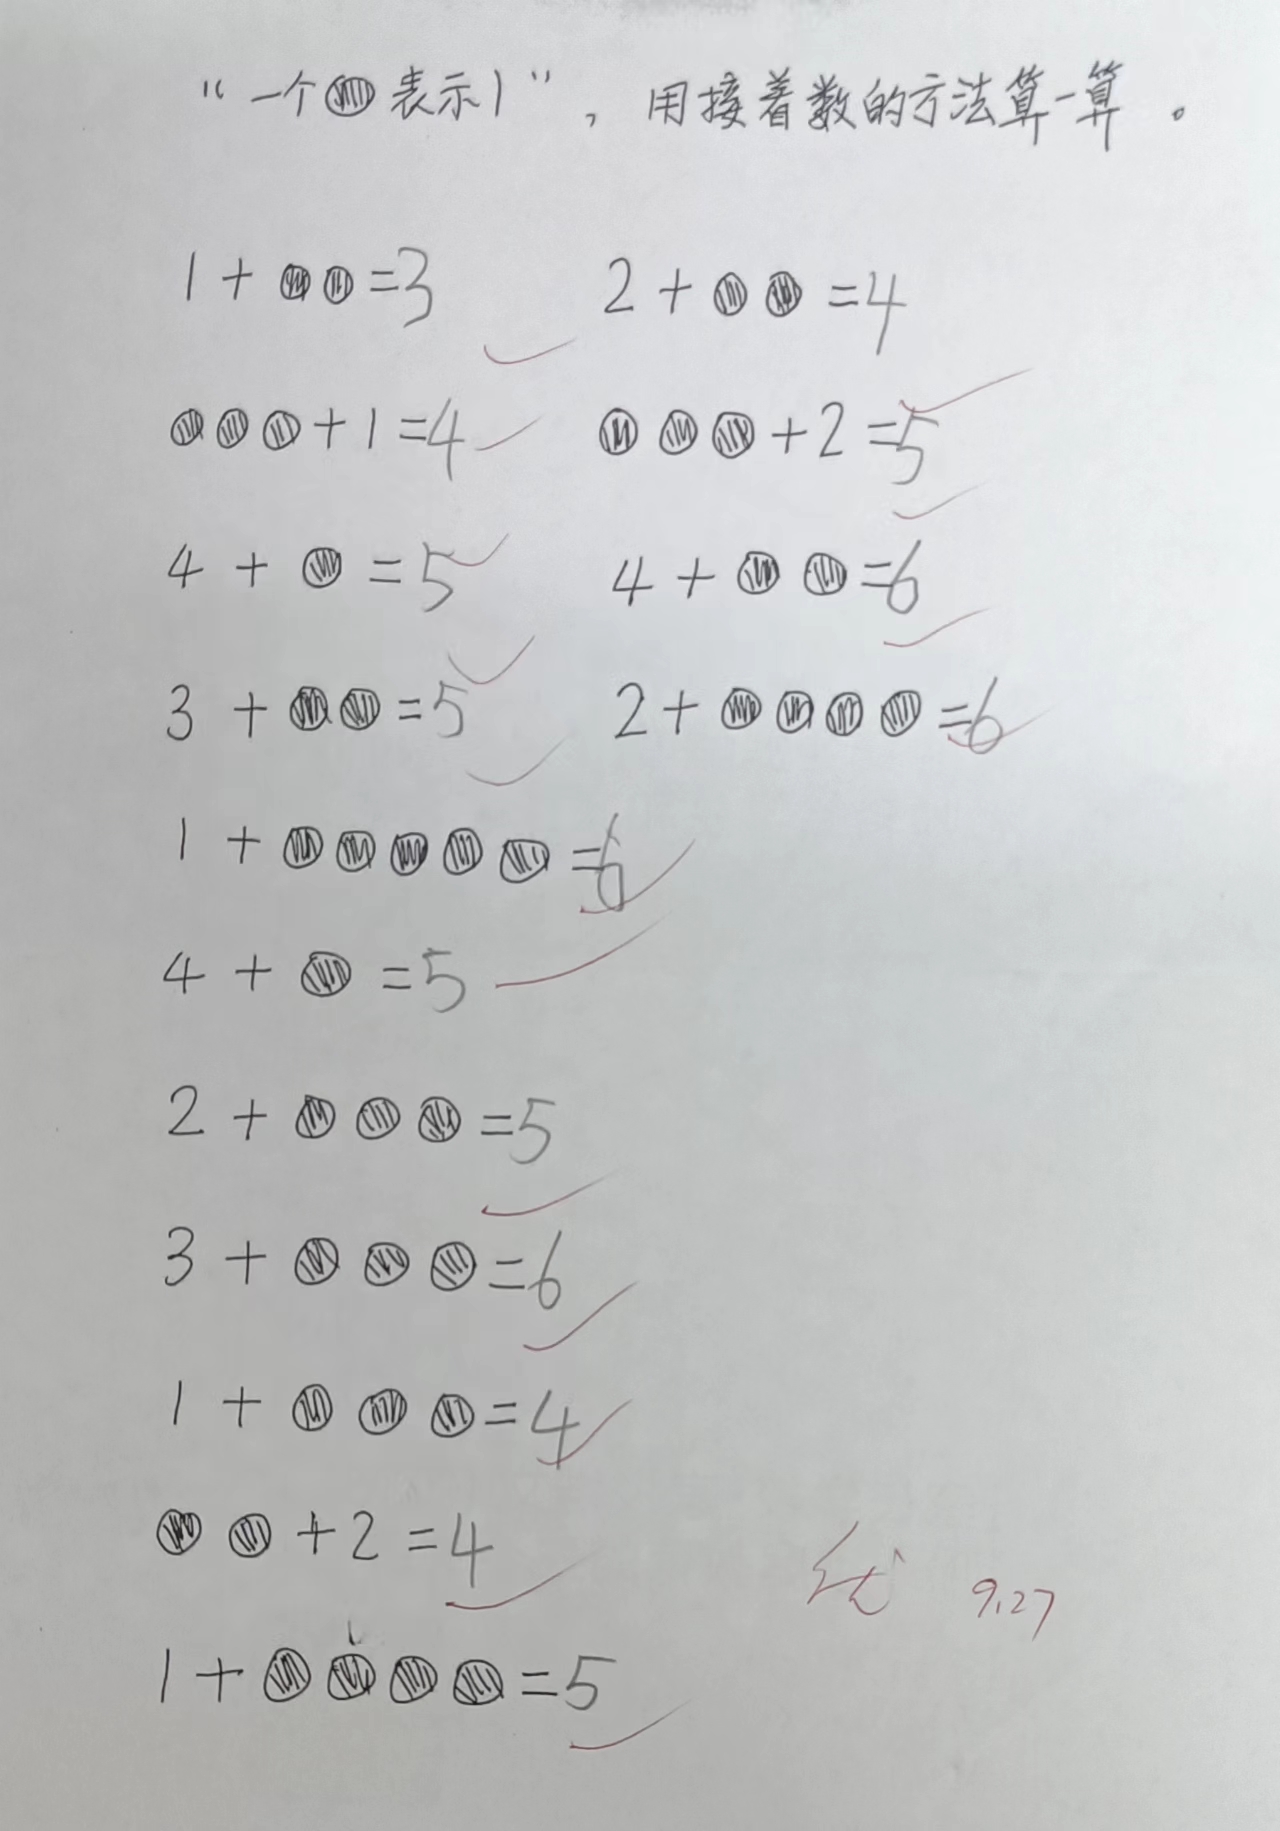 “一个●表示1”，用接着数的方法算一算。
1+●●=3 2+●●=4
●●●+1=4 ●●●+2=5
4+●=5 4+●●=6
3+●●=5 2+●●●●=6
1+●●●●●=6
4+●=5
2+●●●=5
3+●●●=6
1+●●●=4
●●+2=4
优 9.27
1+●●●●=5